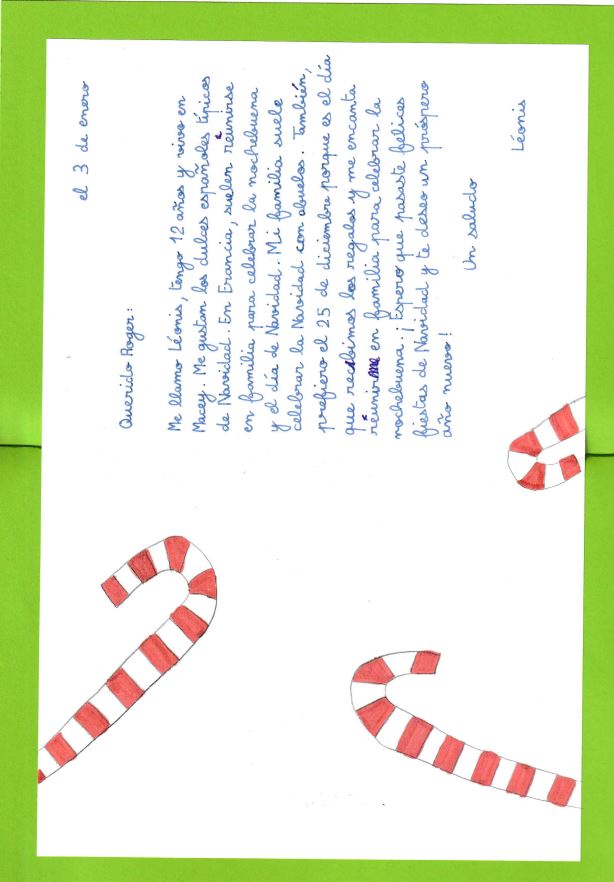 el 3 de enero
Querido Roger:
Me llamo Léonis, tengo 12 años y vivo en
Macey. Me gustan los dulces españoles típicos
de Navidad. En Francia, suelen reunirse
en familia para celebrar la nochebuena
y el día de Navidad. Mi familia suele
celebrar la Navidad con abuelos. También,
prefiero el 25 de diciembre porque es el día
que recibimos los regalos y me encanta
reunirme en familia para celebrar la
nochebuena. ¡Espero que pasaste felices
fiestas de Navidad y te deseo un próspero
año nuevo!
Un saludo
Léonis